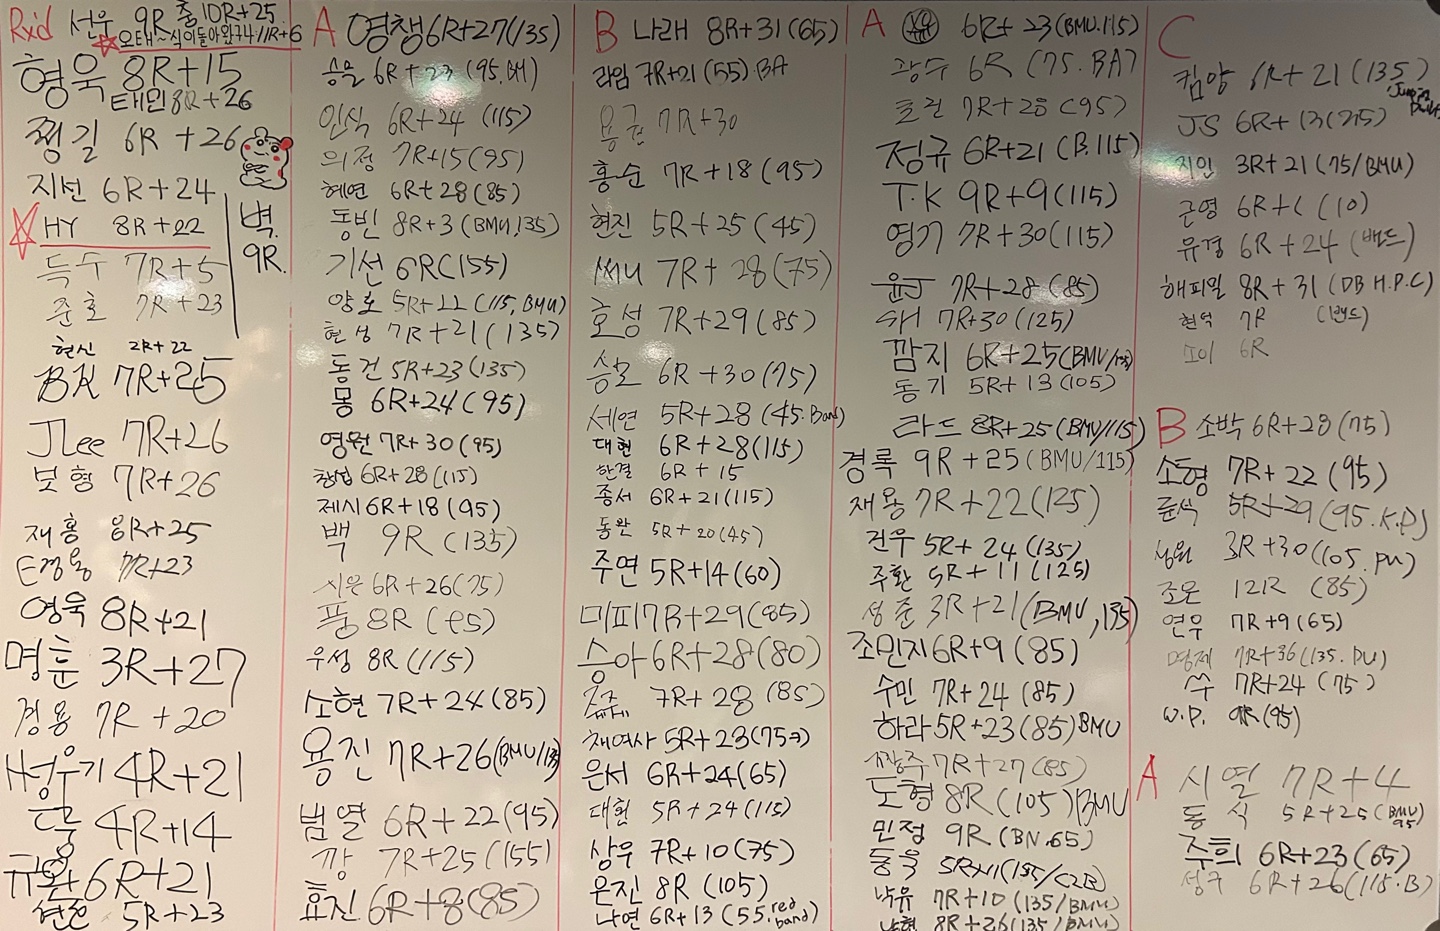 Rxd 선우 9R 총 10R+25
오태~식이돌아왔구나 11R+6
형욱 8R+15
태민 8R+26
찡길 6R+26
지선 6R+24
HY 8R+22
벽. 9R.
득수 7R+5
준호 7R+23
현신 2R+22
BK 7R+25
JLee 7R+26
보형 7R+26
재홍 8R+25
E경용 7R+23
영욱 8R+21
명훈 3R+27
경용 7R+20
4R+21
4R+14
6R+21
5R+23
A 영챙 6R+27(135)
승물 6R+23 (95.BM)
인식 6R+24 (115)
의정 7R+15(95)
혜연 6R+28(85)
동빈 8R+3(BMU,135)
기선 6R(155)
양호 5R+22(115,BMU)
현성 7R+21(135)
동건 5R+23(135)
몽 6R+24(95)
영원 7R+30(95)
창섭 6R+28(115)
제시 6R+18(95)
백 9R (135)
시은 6R+26(75)
풍 8R
우성 8R(115)
소현 7R+24(85)
용진 7R+26(BMU/135)
범열 6R+22(95)
깡 7R+25(155)
효진 6R+8(85)
B 나래 8R+31(65)
라임 7R+21(55).BA
용근 7R+30
홍순 7R+18(95)
현진 5R+25(45)
써니 7R+28(75)
호성 7R+29(85)
승호 6R+30(75)
세연 5R+28(45.Band)
대현 6R+28(115)
한결 6R+15
종서 6R+21(115)
동완 5R+20(45)
주연 5R+14(60)
미피 7R+29(85)
승아 6R+28(80)
7R+28(85)
채여사 5R+23
은서 6R+24(65)
대현 5R+24(115)
상우 7R+10(75)
은진 8R(105)
나연 6R+13(55.red band)
A 6R+23(BMU.115)
광수 6R (75.BA)
7R+28(95)
정규 6R+21(B.115)
T.K 9R+9(115)
영기 7R+30(115)
윤J 7R+28(85)
SH 7R+30(125)
깜지 6R+25(BMU/135)
동기 5R+13(105)
라드 8R+25(BMU/115)
경록 9R+25(BMU/115)
재용 7R+22(125)
건우 5R+24(135)
주환 5R+11(125)
성준 3R+21(BMU,135)
조민지 6R+9(85)
수민 7R+24(85)
하라 5R+23(85)BMU
짱주 7R+27(85)
도형 8R(105)BMU
민정 9R(BN.65)
동욱
낙유 7R+10(135/BMU)
8R+26(135/BMU)
C
킴양 6R+21(135)
JS 6R+13
지인 3R+21(75/BMU)
근영 (10)
유경 6R+24(밴드)
해피일 8R+31(DB H.P.C)
현덕 7R (밴드)
6R
B 소박 6R+28(75)
소형 7R+22(95)
윤석 5R+29(95.K.D)
상원 3R+30(105.PU)
조은 12R (85)
연우 7R+9(65)
명제 7R+36(135.PU)
쑤 7R+24(75)
W.P. 9R(95)
A 시열 7R+4
동식 5R+25(BMU 95)
주희 6R+23(65)
성구 6R+26(115.B)